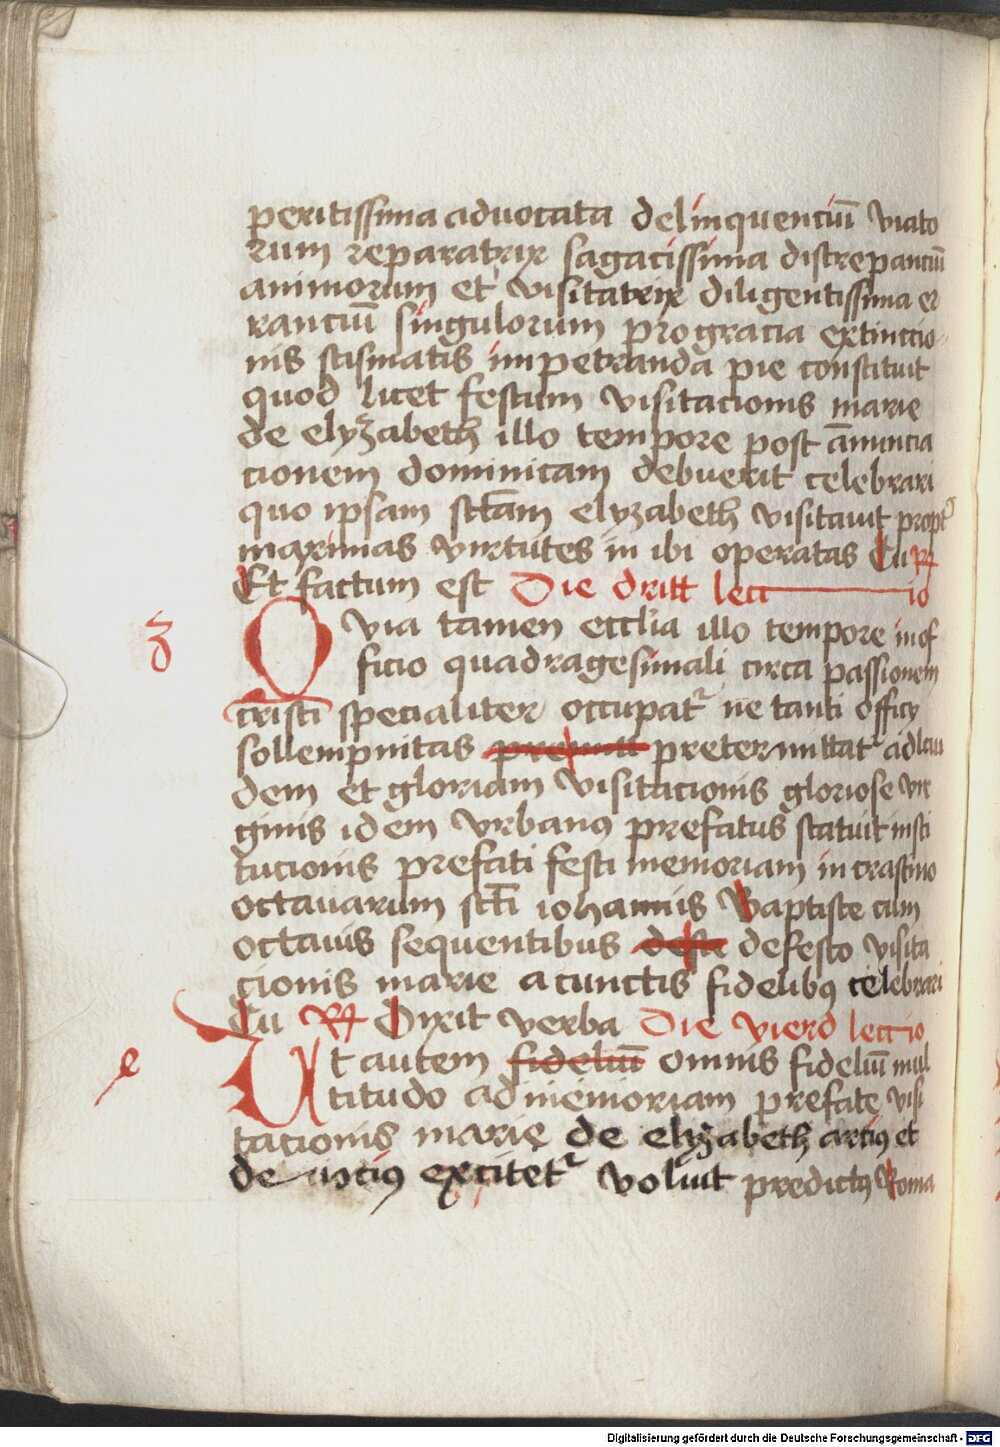 peritissima aduocata delinquenciū viato
rum reparatrix sagacissima discrepanciū
animorum et visitatrix diligentissima er
ranciū singulorum pro gracia extinccio
nis scismatis impetranda pie constituit
quod licet festum visitacionis marie
de elyzabeth illo tempore post ānuncia
cionem dominicam debuerit celebrari
quo ipsam sctām elyzabeth visitauit propt
maximas virtutes in ibi operatas Tu R
Et factum est Die dritt lect
io
3
Qvia tamen eccl'ia illo tempore in of
ficio quadragesimali circa passionem
cristi specialiter occupat ne tanti officy
sollempnitas pretermittat ad lau
dem et gloriam visitacionis gloriose vir
ginis idem vrbanꝯ prefatus statuit insti
tucionis prefati festi memoriam in crastino
octauarum scti iohannis Baptiste cum
octauis sequentibus de festo visita
cionis marie a cunctis fidelibꝯ celebrari
Tu R Dixit verba Die vierd lectio
Ut autem fideliū omnis fideliū mul
titudo ad memoriam prefate visi
tacionis marie de elyzabeth arciꝯ et
excitet voluit predictꝯ Roma
Digitalisierung gefördert durch die Deutsche Forschungsgemeinschaft - DFG